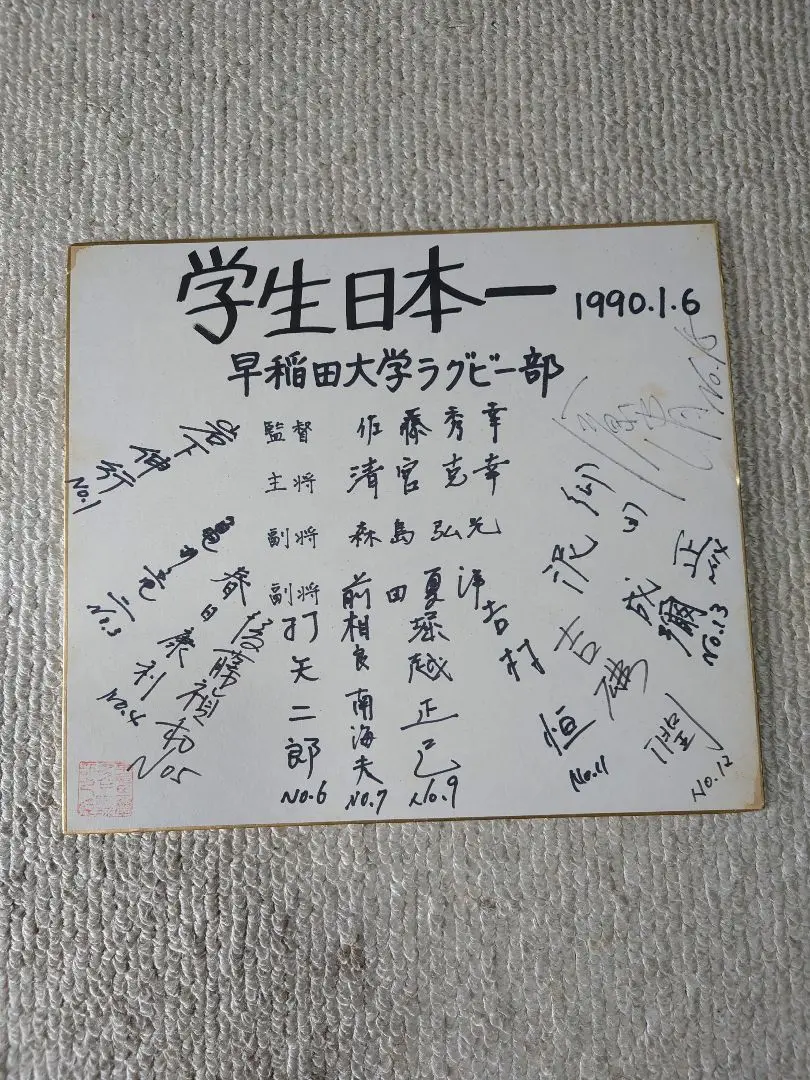 学生日本一 1990.1.6
早稲田大学ラグビー部
監督 佐藤秀幸
主将 清宮克幸
副将 森島弘光
副将 前田夏洋
岩下伸行
No.1
No.3
春日康利
No.4
後藤禎和
No5
打矢二郎
No.6
相良南海夫
No.7
堀越正己
No.9
吉村恒
No.11
吉雄潤
No.12
No.13
No.14
No.15